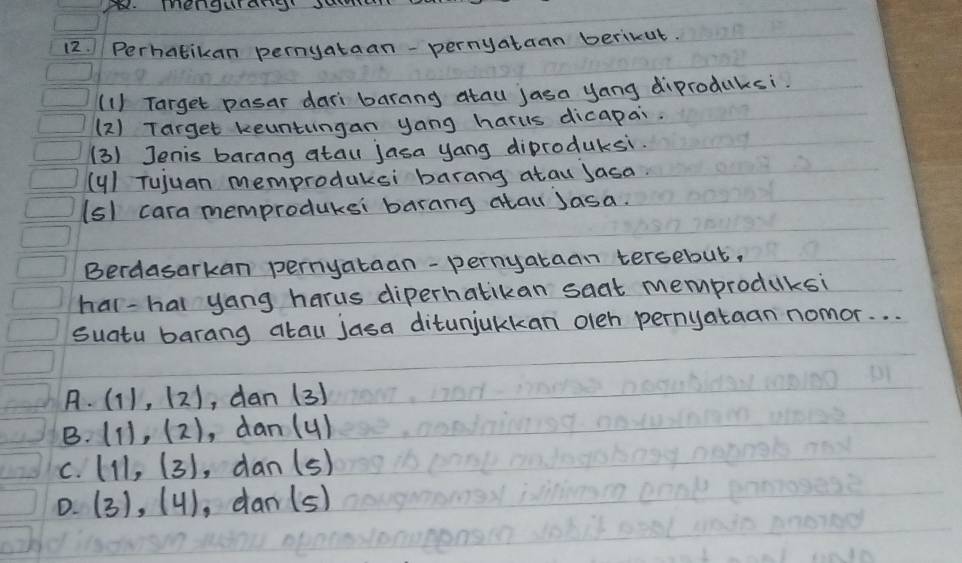 mengurangi
12. Perhatikan pernyataan - pernyataan berikut.
(1) Target pasar dari barang atau jasa yang diproduksi.
(2) Target keuntungan yang harus dicapai.
(3) Jenis barang atau jasa yang diproduksi.
(4) Tujuan memproduksi barang atau jasa.
(5) cara memproduksi barang atau jasa.
Berdasarkan pernyataan - pernyataan tersebut,
hal-hal yang harus diperhatikan saat memproduksi
suatu barang atau jasa ditunjukkan oleh pernyataan nomor...
A. (1), (2), dan (3)
B. (1), (2), dan (4)
C. (1), (3), dan (5)
D. (3), (4), dan (5)